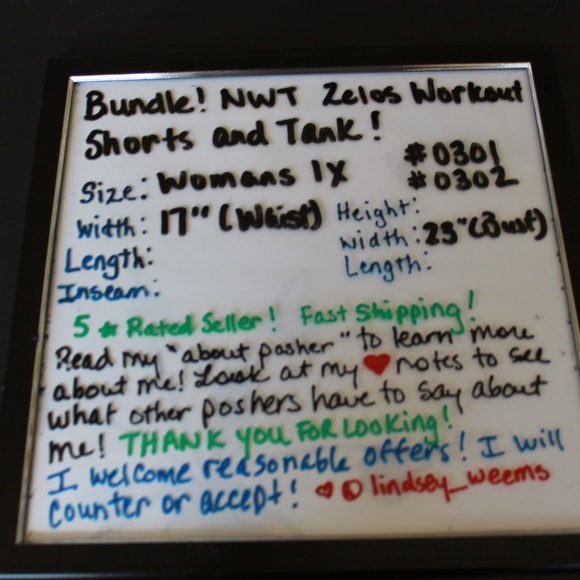 Bundle! NWT Zelos Workout
Shorts and Tank!
#0301
Size: Womans 1X #0302
Width: 17" (Waist) Height:
Length: Width: 23" (Bust)
Inseam: Length:
5 ★ Rated Seller! Fast Shipping!
Read my "about posher" to learn more
about me! Look at my ♥ notes to see
what other poshers have to say about
me! THANK YOU FOR LOOKING!
I welcome reasonable offers! I will
counter or accept! lindsey_weems